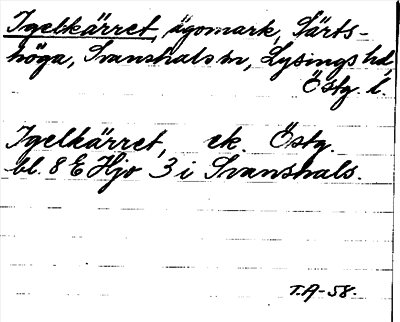 Igelkärret, ägomark, Särts-
höga, Svanshals sn, Lysings hd
Östg. l.
Igelkärret, ek. Östg.
bl. 8 E Hjo 3 i Svanshals.
T.A-58.